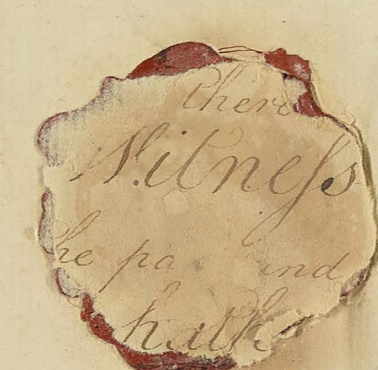 there
Witneſs
he pa nd
hath